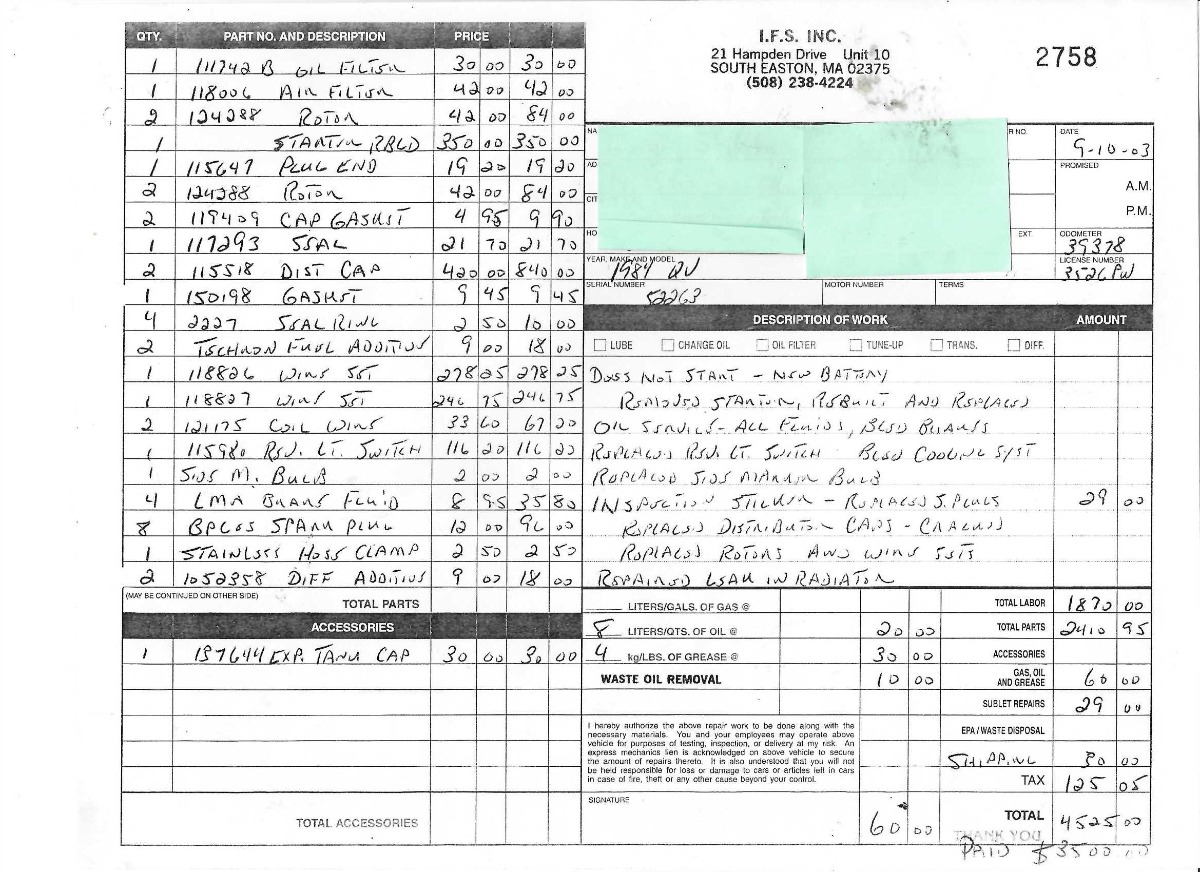 I.F.S. INC.
21 Hampden Drive Unit 10
SOUTH EASTON, MA 02375
(508) 238-4224
2758
QTY. PART NO. AND DESCRIPTION PRICE
1 111742 B OIL FILTER 30 00 30 00
1 118006 AIR FILTER 42 00 42 00
2 124288 ROTOR 42 00 84 00
1 STARTER RBLD 350 00 350 00
1 115647 PLUG END 19 20 19 20
2 124288 ROTOR 42 00 84 00
2 119409 CAP GASKET 4 95 9 90
1 117293 SEAL 21 70 21 70
2 115518 DIST CAP 420 00 840 00
1 150198 GASKET 9 45 9 45
4 2227 SEAL RING 2 50 10 00
2 TECHRON FUEL ADDITIVE 9 00 18 00
1 118826 WIRE SET 278 25 278 25
1 118827 WIRE SET 246 75 246 75
2 121175 COIL WIRE 33 60 67 20
1 115980 REV. LT. SWITCH 116 20 116 20
1 SIDE M. BULB 2 00 2 00
4 LMA BRAKE FLUID 8 95 35 80
8 SPARK PLUG 12 00 96 00
1 STAINLESS HOSE CLAMP 2 50 2 50
2 1052358 DIFF ADDITIVE 9 00 18 00
(MAY BE CONTINUED ON OTHER SIDE) TOTAL PARTS
ACCESSORIES
1 137644 EXP. TANK CAP 30 00 30 00
TOTAL ACCESSORIES
NA
R NO.
DATE
9-10-03
AD
PROMISED
A.M.
P.M.
CIT
HO
EXT.
ODOMETER
39378
YEAR, MAKE AND MODEL
1984 QV
LICENSE NUMBER
3526 PW
SERIAL NUMBER
52263
MOTOR NUMBER
TERMS
DESCRIPTION OF WORK AMOUNT
LUBE CHANGE OIL OIL FILTER TUNE-UP TRANS. DIFF.
DOES NOT START - NEW BATTERY
REMOVED STARTER, REBUILT AND REPLACED
OIL SERVICE - ALL FLUIDS, BLED BRAKES
REPLACED REV. LT. SWITCH BLED COOLING SYST
REPLACED SIDE MARKER BULB
INSPECTION STICKER - REPLACED S. PLUGS 29 00
REPLACED DISTRIBUTOR CAPS - CRACKED
REPLACED ROTORS AND WIRE SETS
REPAIRED LEAK IN RADIATOR
LITERS/GALS. OF GAS @
8 LITERS/QTS. OF OIL @ 20 00
4 kg/LBS. OF GREASE @ 30 00
WASTE OIL REMOVAL 10 00
TOTAL LABOR 1870 00
TOTAL PARTS 2410 95
ACCESSORIES
GAS, OIL AND GREASE 60 00
SUBLET REPAIRS 29 00
EPA/WASTE DISPOSAL
SHIPPING 30 00
TAX 125 05
I hereby authorize the above repair work to be done along with the
necessary materials. You and your employees may operate above
vehicle for purposes of testing, inspection, or delivery at my risk. An
express mechanics lien is acknowledged on above vehicle to secure
the amount of repairs thereto. It is also understood that you will not
be held responsible for loss or damage to cars or articles left in cars
in case of fire, theft or any other cause beyond your control.
SIGNATURE
60 00
TOTAL 4525 00
THANK YOU
PAID $3500.00